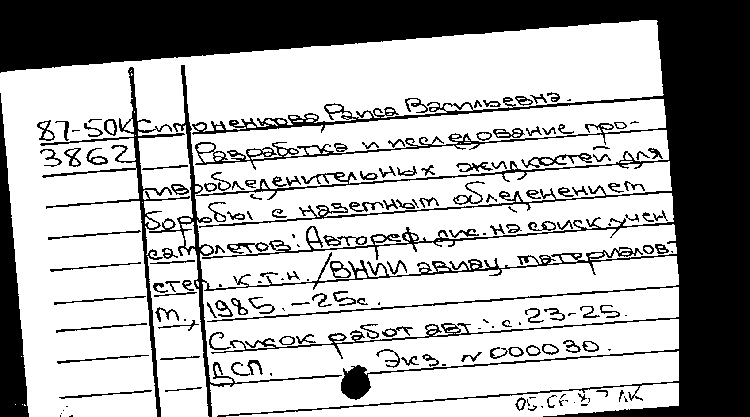 87-50К Симоненкова, Раиса Васильевна.
3862 Разработка и исследование про-
тивообледенительных жидкостей для
борьбы с наземным обледенением
самолетов: Автореф. дис. на соиск. учен.
степ. к.т.н. /ВНИИ авиац. материалов.-
М., 1985. -25с.
Список работ авт.: с. 23-25.
ДСП. Экз. N 000030.
05.06.87 ЛК